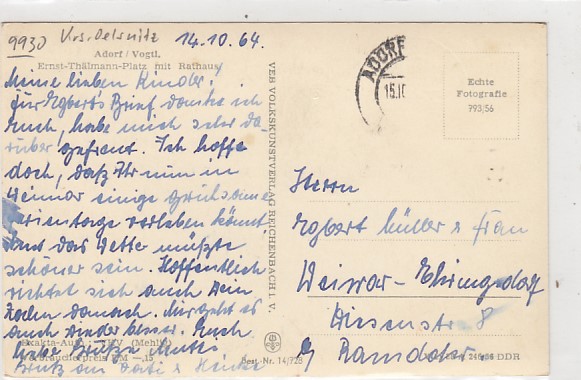 9930 Krs. Oelsnitz 14.10.64.
Adorf / Vogtl.
Ernst-Thälmann-Platz mit Rathaus
Meine lieben Kinder!
Für Egberts Brief danke ich
Euch, habe mich sehr da-
rüber gefreut. Ich hoffe
doch, daß Ihr nun in
Weimar einige geruhsame
Ferientage verleben könnt
und das Wetter müßte
schöner sein. Hoffentlich
richtet sich auch Dein
danach. Mir geht es
auch wieder besser. Euch
liebe Grüße Mutti
Gruß an &
Exakta-Auf.: (Mehlh
Verbraucherpreis DM -,15
VEB VOLKSKUNSTVERLAG REICHENBACH I. V.
Best.-Nr. 14/728
ADORF
15.10
Echte
Fotografie
793/56
Herrn
Egbert Müller & Frau
Weimar-Ehringsdorf
Wiesenstr. 8
b/ Ramdohr
DDR